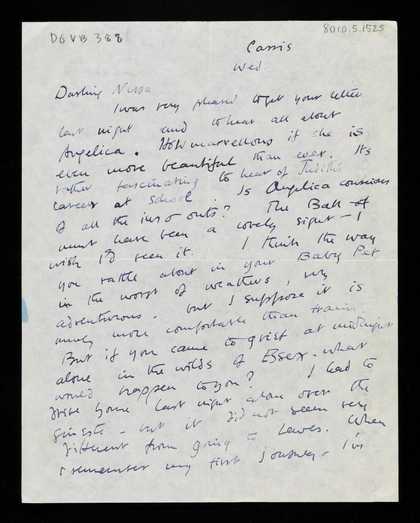 DGVB 388
8010.5.1525
Cassis
Wed
Darling Nessa
I was very pleased to get your letter
last night and to hear all about
Angelica. How marvellous if she is
even more beautiful than ever. Its
rather fascinating to hear of Judith's
career at school. Is Angelica conscious
of all the ins & outs? The Ball
must have been a lovely sight - I
wish I'd seen it. I think the way
you rattle about in your Baby
in the worst of weathers, very
adventurous. but I suppose it is
much more comfortable than trains.
But if you came to grief at midnight
alone in the wilds of Essex - what
would happen to you? I had to
drive home last night alone over the
but it did not seem very
different from going to Lewes. When
I remember my first journey - I'm